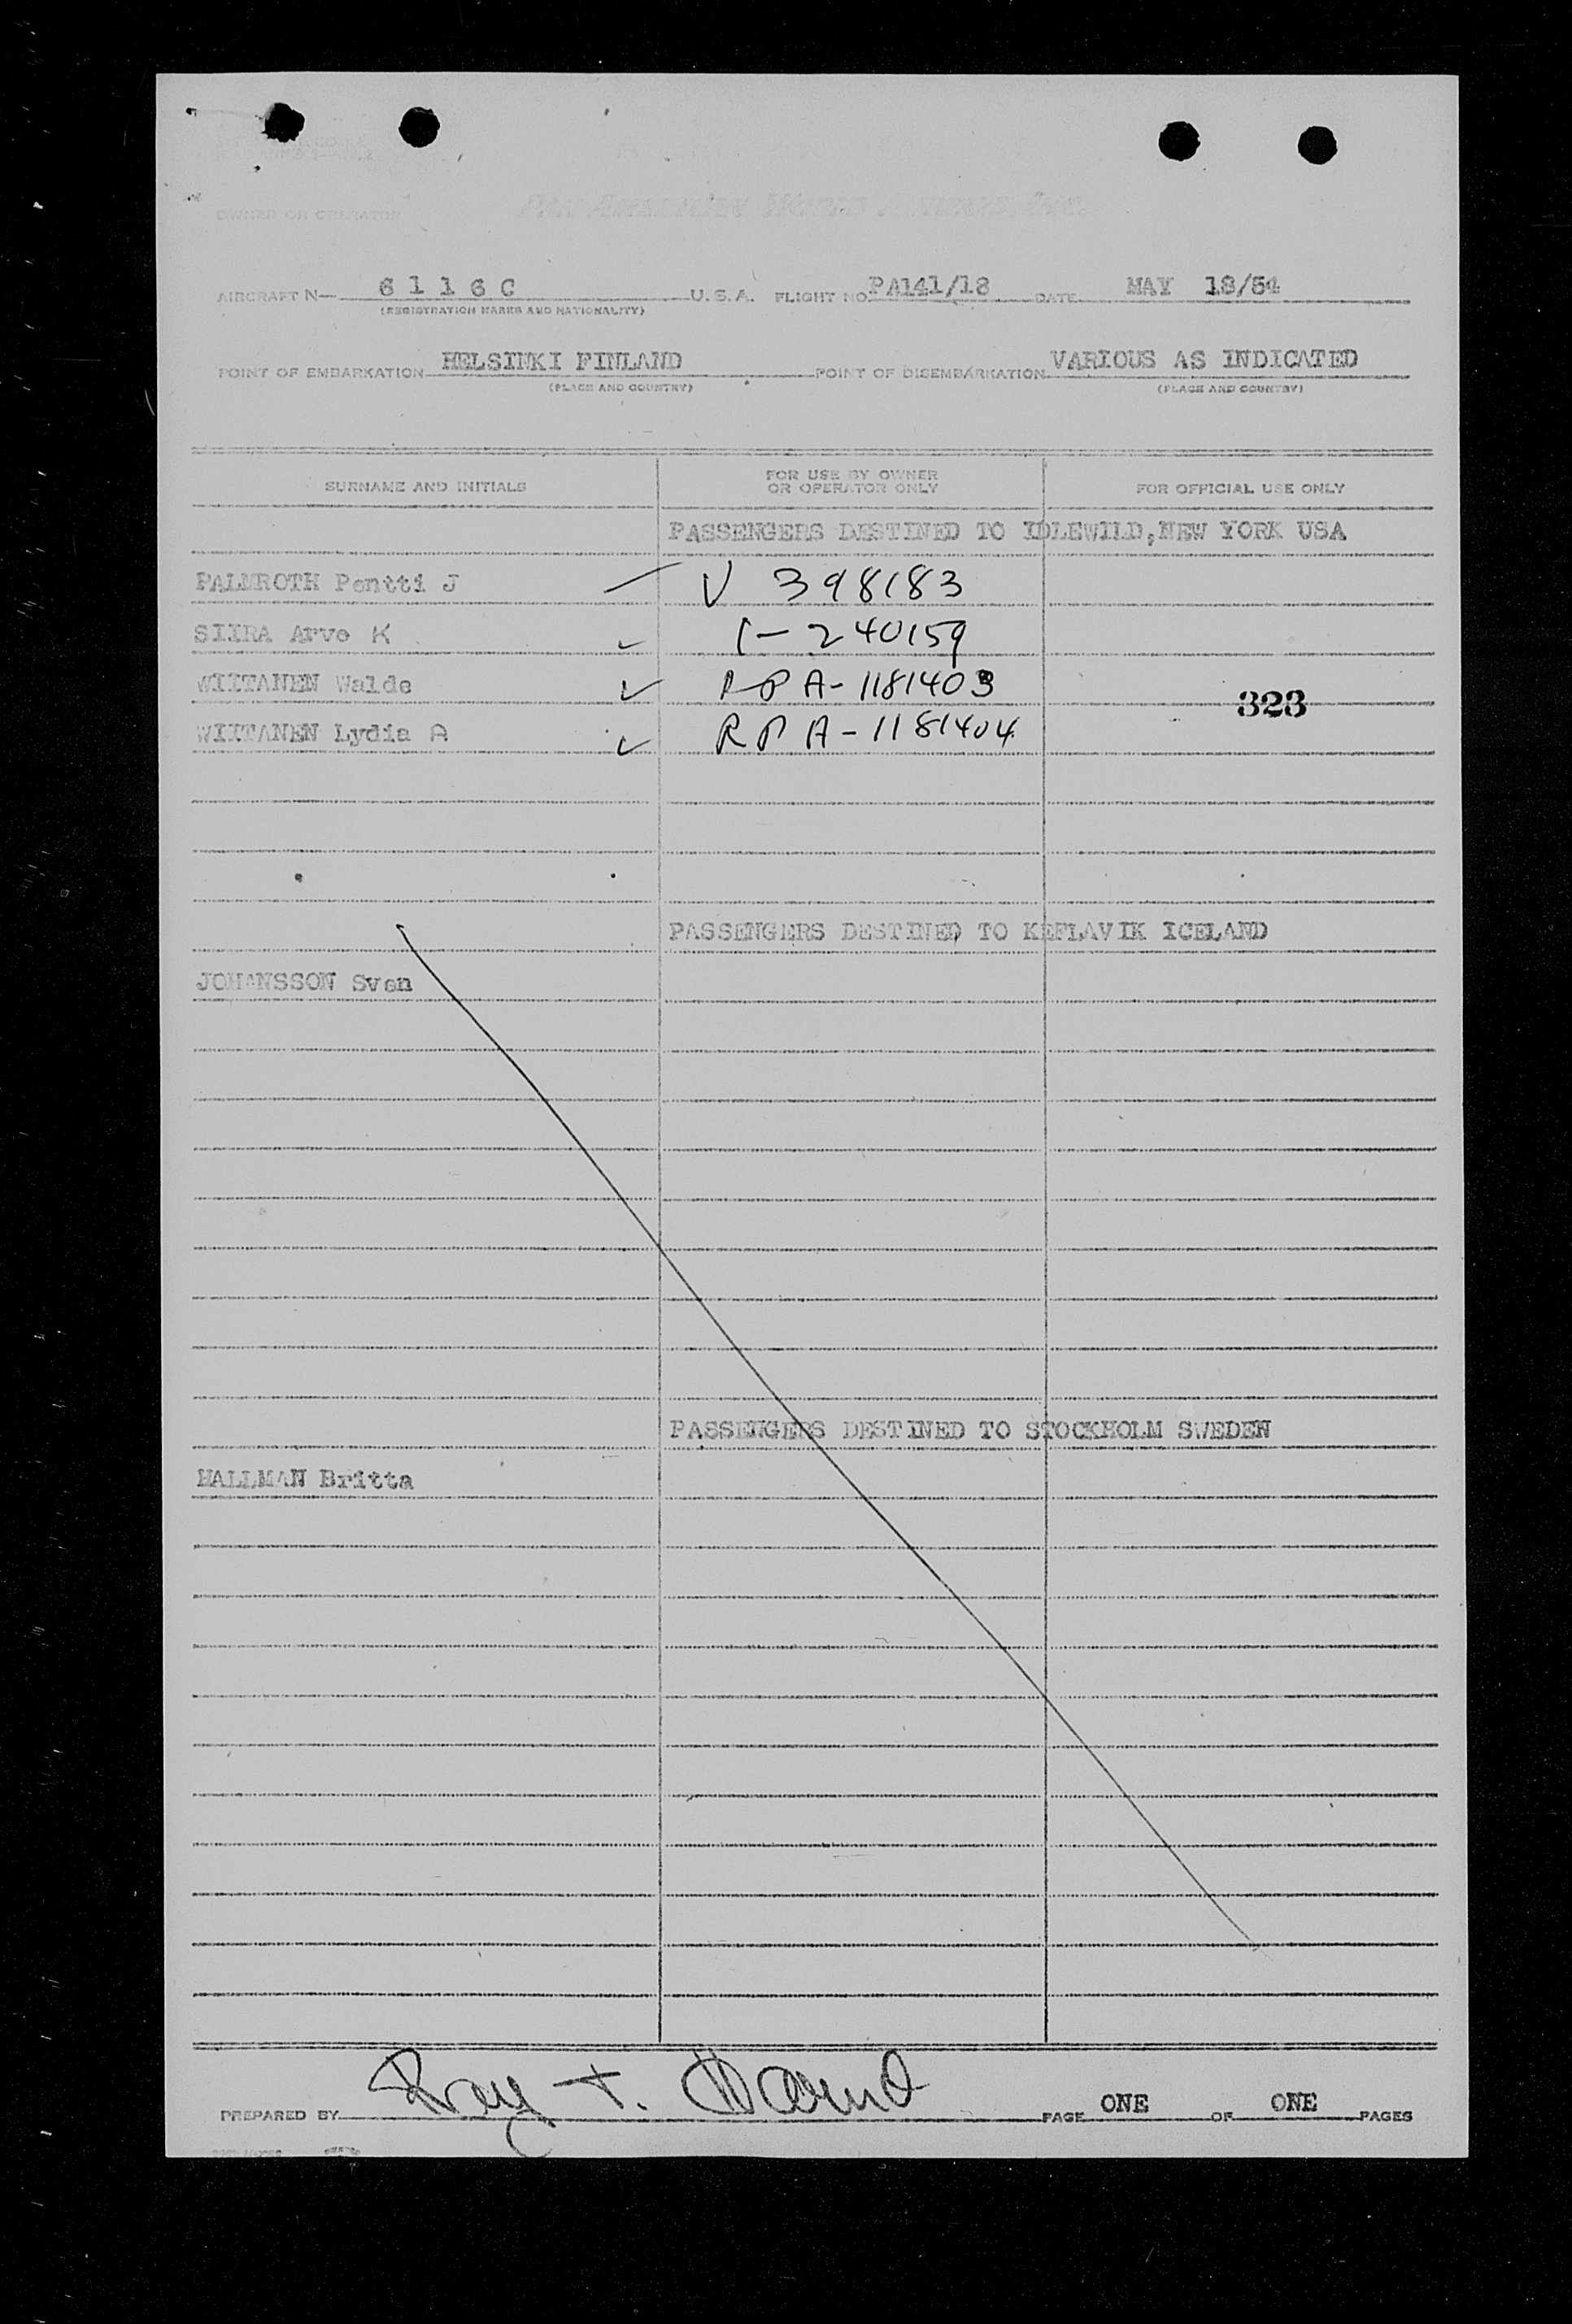 OWNER OR OPERATOR PAN AMERICAN WORLD AIRWAYS, INC.
AIRCRAFT N— 6 1 1 6 C U. S. A. FLIGHT NO. PA141/18 DATE MAY 18/54
(REGISTRATION MARKS AND NATIONALITY)
POINT OF EMBARKATION HELSINKI FINLAND POINT OF DISEMBARKATION VARIOUS AS INDICATED
(PLACE AND COUNTRY) (PLACE AND COUNTRY)
SURNAME AND INITIALS FOR USE BY OWNER OR OPERATOR ONLY FOR OFFICIAL USE ONLY
PASSENGERS DESTINED TO IDLEWILD, NEW YORK USA
PALMROTH Pentti J V 398183
SIIRA Arvo K 1-240159
WIITANEN Walde RPA-1181403
323
WIITANEN Lydia A RPA-1181404
PASSENGERS DESTINED TO KEFLAVIK ICELAND
JOHANSSON Sven
PASSENGERS DESTINED TO STOCKHOLM SWEDEN
HALLMAN Britta
PREPARED BY Roy T. PAGE ONE OF ONE PAGES